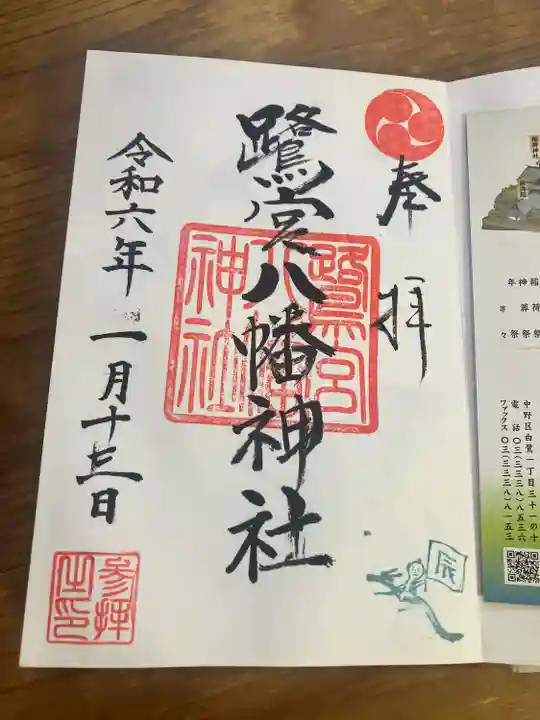 奉拝
鷺宮八幡神社
鷺宮八幡神社
令和六年 一月十三日
参拝之印
辰
中野区白鷺一丁目三十一の十
電話〇三(三三三八)八五三六
ファックス〇三(三三三八)八一五三